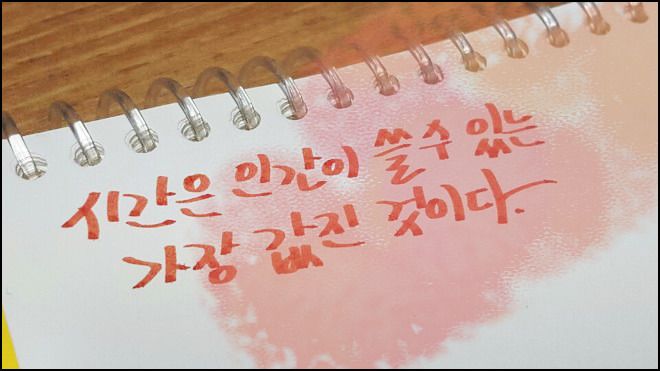 시간은 인간이 쓸 수 있는
가장 값진 것이다.